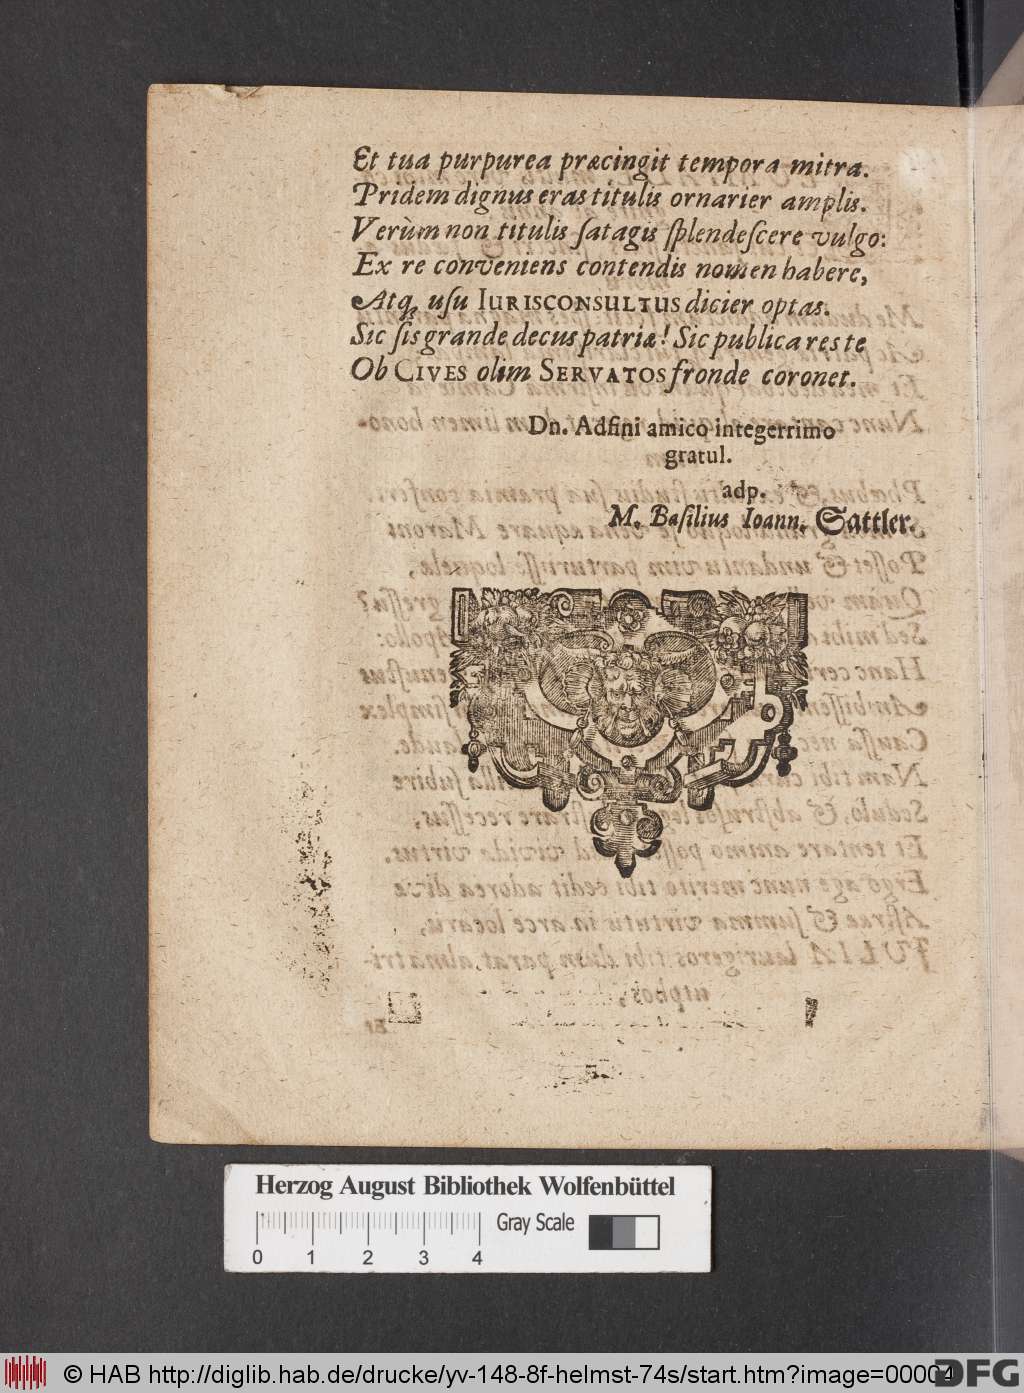 Et tua purpurea præcingit tempora mitra.
Pridem dignus eras titulis ornarier amplis.
Verùm non titulis ſatagis ſplendeſcere vulgo:
Ex re conveniens contendis nomen habere,
Atq; uſu IURISCONSULTUS dicier optas.
Sic ſis grande decus patriæ! Sic publica res te
Ob CIVES olim SERVATOS fronde coronet.
Dn. Adfini amico integerrimo
gratul.
adp.
M. Baſilius Ioann. Sattler.
Herzog August Bibliothek Wolfenbüttel
Gray Scale
0 1 2 3 4
© HAB http://diglib.hab.de/drucke/yv-148-8f-helmst-74s/start.htm?image=00004
DFG